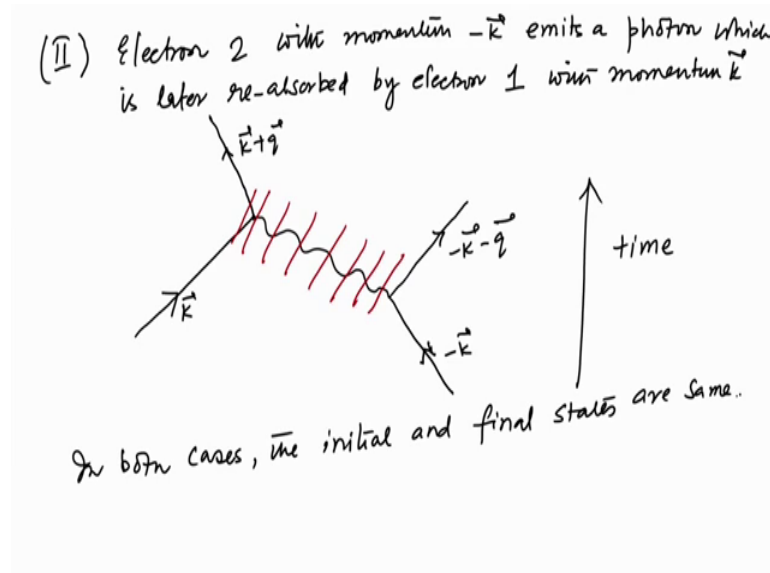 (II) Electron 2 with momentum -k⃗ emits a photon which
is later re-absorbed by electron 1 with momentum k⃗
k⃗+q⃗
-k⃗-q⃗
time
k⃗
-k⃗
In both cases, the initial and final states are same..